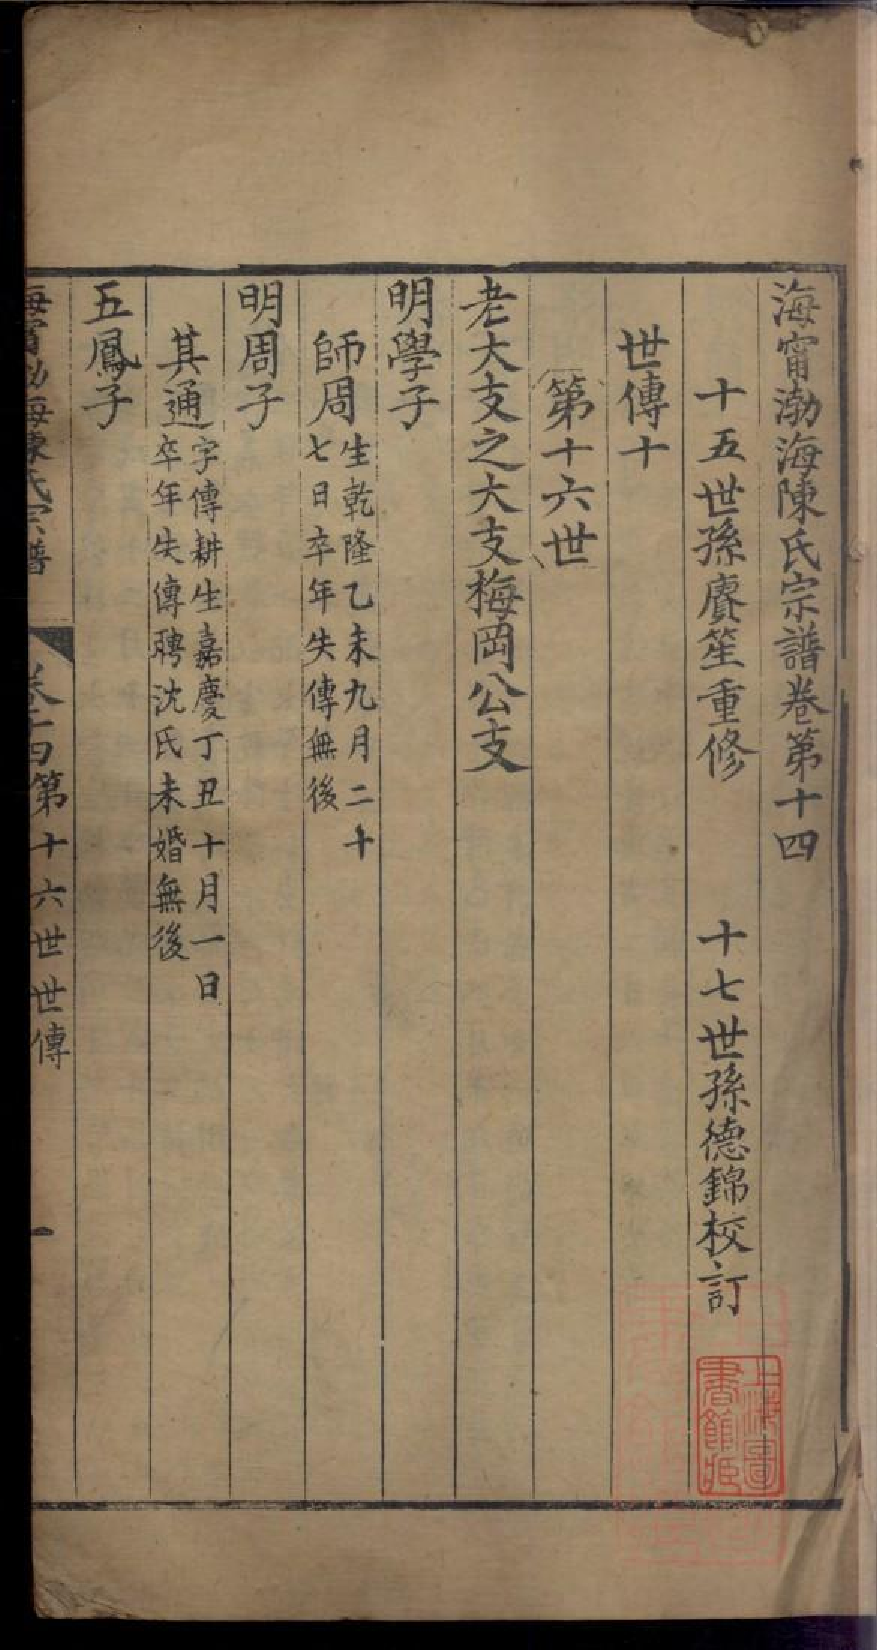 海甯渤海陳氏宗譜卷第十四
十五世孫賡笙重修 十七世孫德錦校訂
世傳十
第十六世
老大支之大支梅岡公支
明學子
師周 生乾隆乙未九月二十
七日卒年失傳無後
明周子
其通 字傳耕生嘉慶丁丑十月一日
卒年失傳聘沈氏未婚無後
五鳳子
海甯渤海陳氏宗譜 卷十四第十六世世傳 一
上海圖書館藏